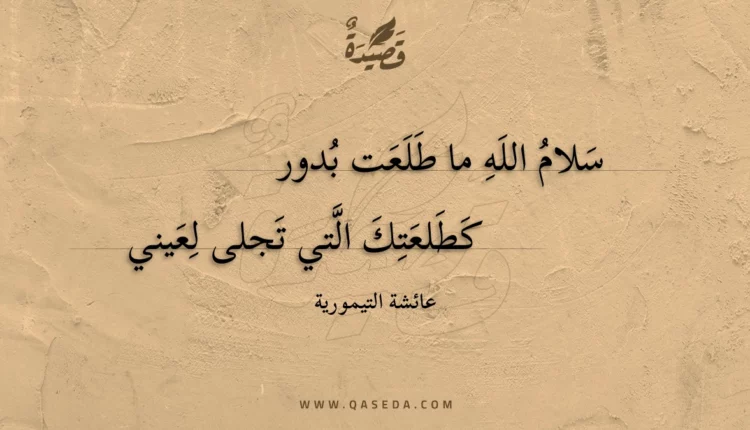 قَصِيدَةٌ
سَلامُ اللَهِ ما طَلَعَت بُدور
كَطَلعَتِكَ الَّتي تَجلى لِعَيني
عائشة التيمورية
WWW.QASEDA.COM